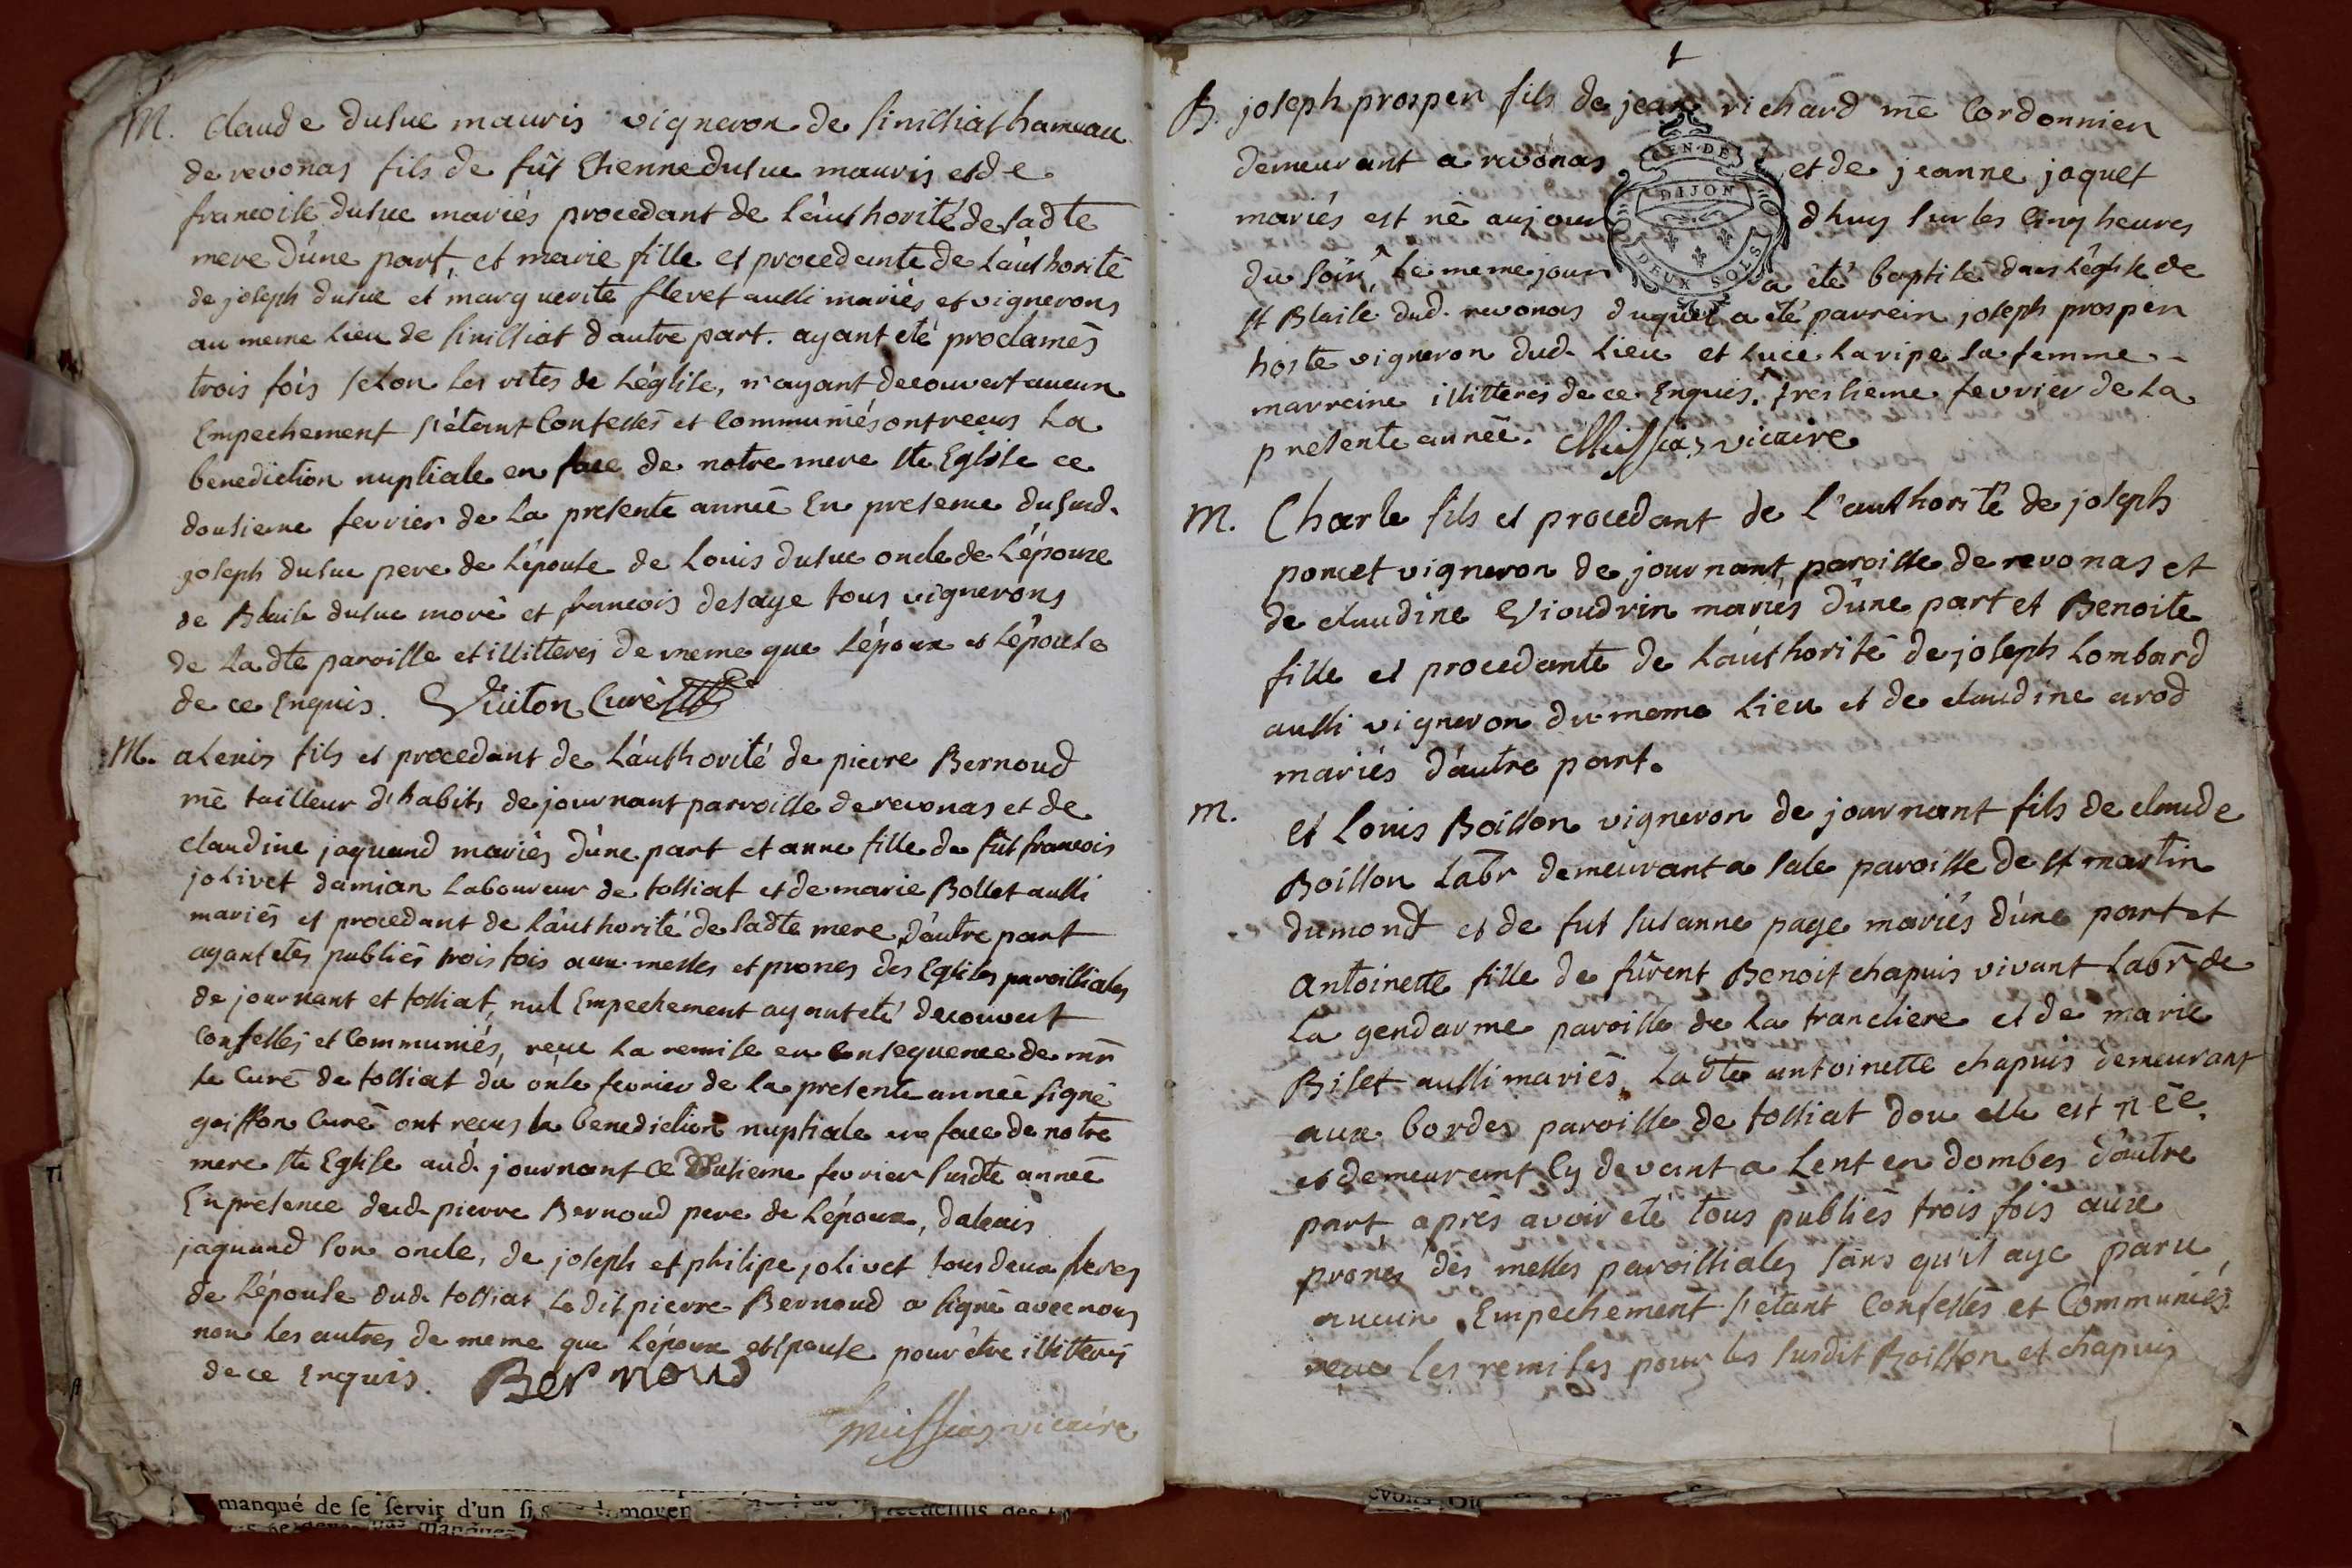 M. Claude dusuc mauris vigneron de sinissiat hameau
de revonas fils de fût Etienne dusuc mauris et de
francoise dusuc mariés procedant de l'authorité de sadte
mere d'une part, et marie fille et procedante de l'authorité
de joseph dusuc et marguerite flevet aussi mariés et vignerons
au meme lieu de sinissiat d'autre part. ayant eté proclamés
trois fois selon les rites de l'église, n'ayant decouvert aucun
Empechement s'étant Confessés et Communiés ont reçus La
benediction nuptiale en face de notre mere Ste Eglise ce
dousieme fevrier de La presente année En presence du sud.
joseph dusuc pere de l'épouse de Louis dusuc oncle de L'épouse
de Blaise dusuc moré et francois desaye tous vignerons
de Ladte paroisse et illitterés de meme que l'époux et L'épouse
de ce Enquis. Vuiton Curé
M. alexis fils et procedant de L'authorité de pierre Bernoud
me tailleur d'habits de journant parroisse de revonas et de
claudine jaquand mariés d'une part et anne fille de fût francois
jolivet damian Laboureur de tossiat et de marie Bollet aussi
mariés et procedant de l'authorité de sadte mere d'autre part
ayant etés publiés trois fois aux messes et prones des Eglises paroissiales
de journant et tossiat, nul Empechement ayant eté decouvert
Confessés et Communiés, reçue La remise en Consequence de mr
le Curé de tossiat du onse fevrier de la presente année signé
goiffon Curé ont reçus la benediction nuptiale en face de notre
mere Ste Eglise aud. journant ce Dousieme fevrier susdte année
En presence dud. pierre Bernoud pere de L'époux, d'alexis
jaquand son oncle, de joseph et philipe jolivet tous deux freres
de L'épouse dud. tossiat Le dit pierre Bernoud a signé avec nous
non les autres de meme que L'époux et Epouse pour être illitterés
de ce Enquis. Bernoud
Missias vicaire
manqué de se servir d'un moyen
B. joseph prosper fils de jean richard me Cordonnier
demeurant a revonas et de jeanne jaquet
GEN·DE
DIJON
DEUX SOLS
mariés est né aujour d'huy sur les Cinq heures
du soir, Le meme jour a été baptisé dans L'église de
St Blaise dud. revonas duquel a été parrein joseph prosper
hoste vigneron dud. Lieu et Luce Laripe sa femme
marreine illitterés de ce Enquis. Treslieme fevrier de La
presente année. Missias vicaire
M. Charle fils et procedant de l'authorité de joseph
poncet vigneron de journant paroisse de revonas et
de claudine Vioudrin mariés d'une part et Benoite
fille et procedante de L'authorité de joseph Lombard
aussi vigneron du meme Lieu et de claudine arod
mariés d'autre part.
M. et Louis Boisson vigneron de journant fils de claude
Boisson Labr demeurant a sale paroisse de St martin
dumont et de fut susanne page mariés d'une part et
antoinette fille de fûrent Benoit chapuis vivant Labr de
La gendarme paroisse de la tranchiere et de marie
Biset aussi mariés, Ladte antoinette chapuis demeurant
aux bordes paroisse de tossiat dou elle est née
et demeurant Cy devant a Lent en dombes d'autre
part, après avoir eté tous publiés trois fois aux
prones des messes paroissiales sans qu'il aye paru
aucun Empechement s'étant Confessés et Communiés,
reçue les remises pour les susdit Boisson et chapuis